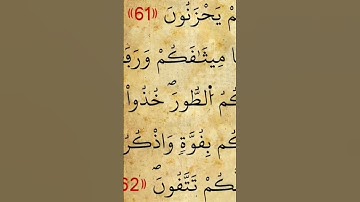 مْ يَحْزَنُونَ «61»
ا مِيثَٰقَكُمْ وَرَفَ
كُمُ اُلطُّورَۖ خُذُواْ
كُم بِقُوَّةٖ وَاذْكُرُ
كُمْ تَتَّقُونَۖ «62